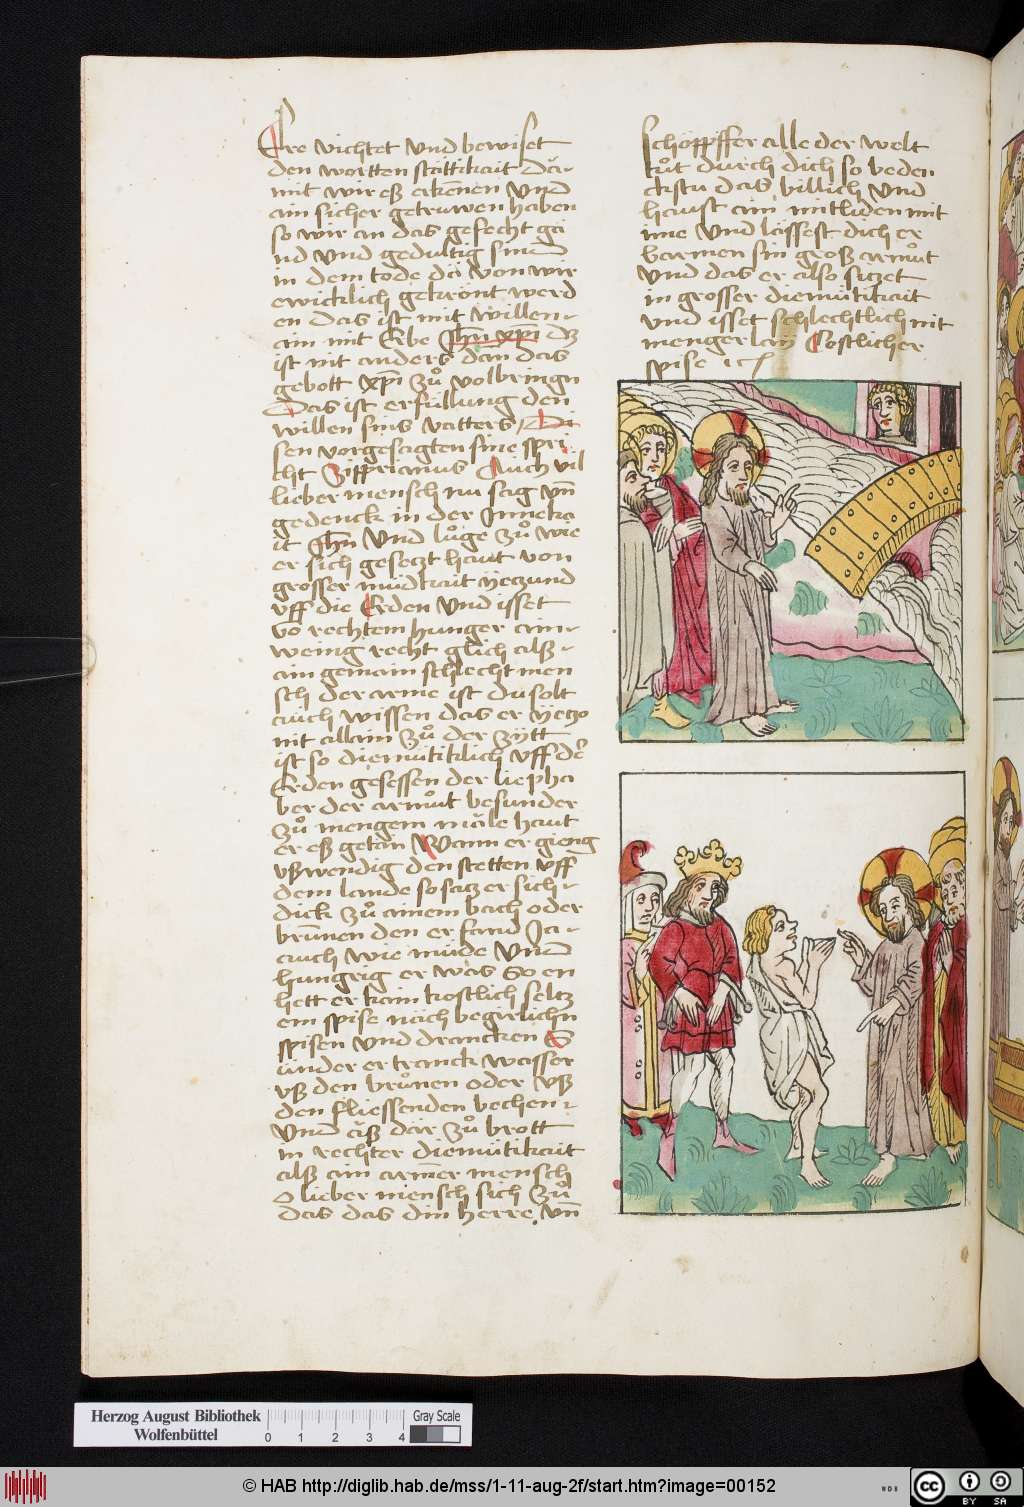 Ere vichtet vnd bewiset
den wortten stättikait Dar
mit wir eß erkennen vnd
ain sicher getruwen haben
so wir an das gefecht gä
nd vnd gedultig sind
in dem tode da von wir
ewicklich gekrönt werd
en das ist mit willen
ain mit Erbe Jhū xp̄i dz
ist nit anders dan das
gebott xp̄i zů volbringn
Das ist erfüllung den
willen sins vatters Di
sen vorgesagten sine spri
cht Zipprianus Auch vil
lieber mensch nu sag vn̄
gedenck in der Inneka
it Jhū vnd lůge zů wie
er sich gesetzt haut von
grosser müdkait yetzund
vff die Erden vnd isset
vō rechtem hunger ain
wenig recht glich alß
ain gemain schlecht men
sch der arme ist du solt
auch wissen das er yetzo
nit allain zů der zytt
ist so diemütiklich vff der
Erden gesessen der liepha
ber der armůt besunder
zů mengem male haut
er eß getan Wann er gieng
vßwendig den stetten vff
dem lande so satz er sich
dick zů ainem bach oder
brunnen den er fand Ja
auch wie müde vnd
hungrig er was So en
hett er kain kostlich seltz
em spise näch begirlichn
spisen vnd drancken S
under er tranck wasser
vß den brůnen oder vß
den fliessenden bechen
Vnd äß dar zů brott
in rechter diemütikait
alß ain armer mensch
O lieber mensch sich zů
das das din herre vn̄
schöpffer alle der welt
tůt durch dich so beden
ckstu das billich vnd
haust ain mitliden mit
ime vnd lässest dich er
barmen sin groß armůt
vnd das er also sitzet
in grosser diemütikait
vnd isset schlechtlich nit
mengerlay Costlicher
spise
Herzog August Bibliothek
Wolfenbüttel
0 1 2 3 4
Gray Scale
© HAB http://diglib.hab.de/mss/1-11-aug-2f/start.htm?image=00152
cc BY SA